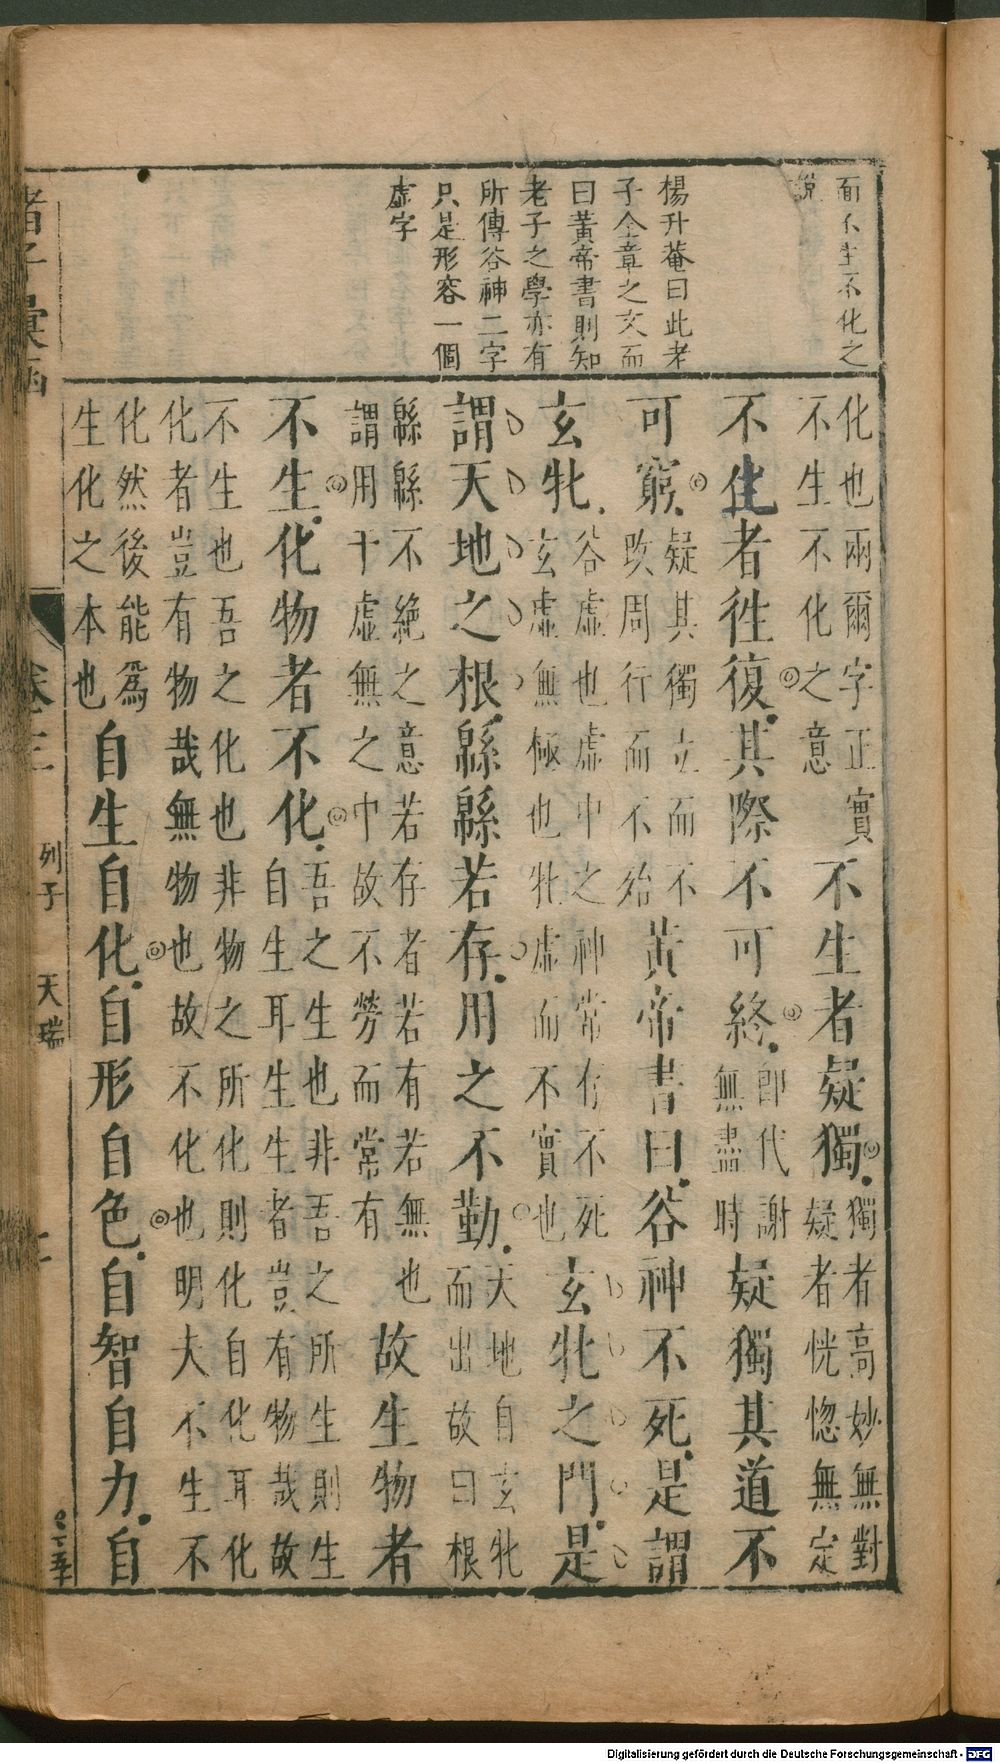 面不生不化之
說
楊升菴曰此老
子全章之文而
曰黃帝書則知
老子之學亦有
所傳谷神二字
只是形容一個
虛字
化也兩爾字正實
不生不化之意
不生者疑獨
獨者高妙無對
疑者恍惚無定
不化者徃復其際不可終
即代謝
無盡時
疑獨其道不
可窮
疑其獨立而不
攺周行而不殆
黃帝書曰谷神不死是謂
玄牝
谷虛也虛中之神常存不死
玄虛無極也牝虛而不實也
玄牝之門是
謂天地之根緜緜若存用之不勤
天地自玄牝
而出故曰根
緜緜不絶之意若存者若有若無也
謂用于虛無之中故不勞而常有
故生物者
不生化物者不化
吾之生也非吾之所生則生
自生耳生生者豈有物哉故
不生也吾之化也非物之所化則化自化耳化
化者豈有物哉無物也故不化也明夫不生不
化然後能爲
生化之本也
自生自化自形自色自智自力自
諸子彙函
列子 天瑞
Digitalisierung gefördert durch die Deutsche Forschungsgemeinschaft - DFG